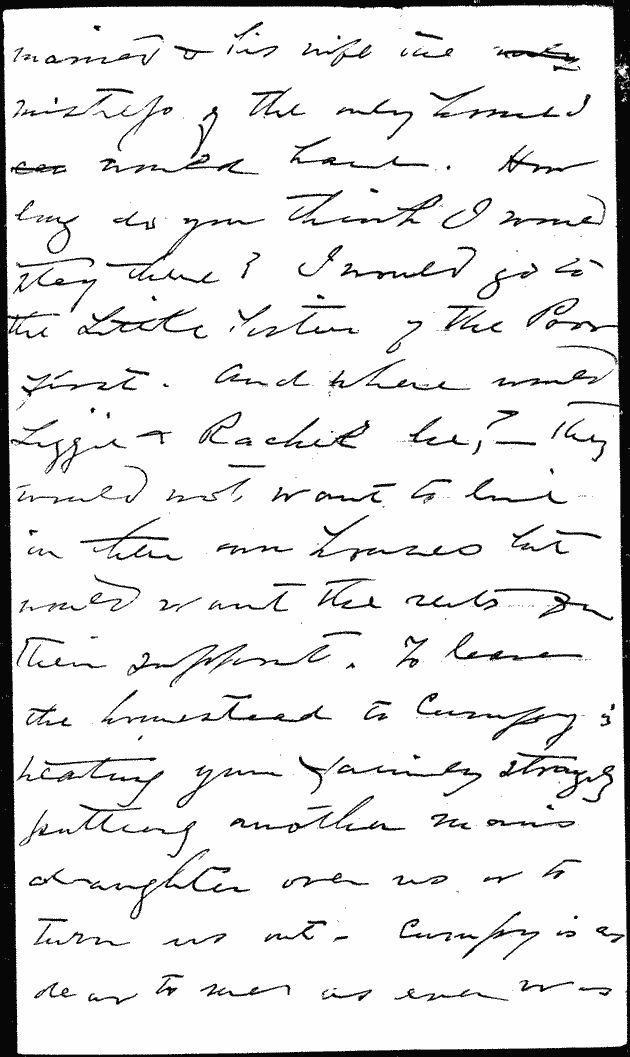 married & his wife the only
mistress of the only home I
would have. How
long do you think I would
stay there? I would go to
the Little Sisters of the Poor
first. And where would
Lizzie & Rachel be? — They
would not want to live
in their own houses but
would want the rents for
their support. To leave
the homestead to Cumpy is
treating your family strangely
putting another man's
daughter over us or to
turn us out – Cumpy is as
dear to me as ever was